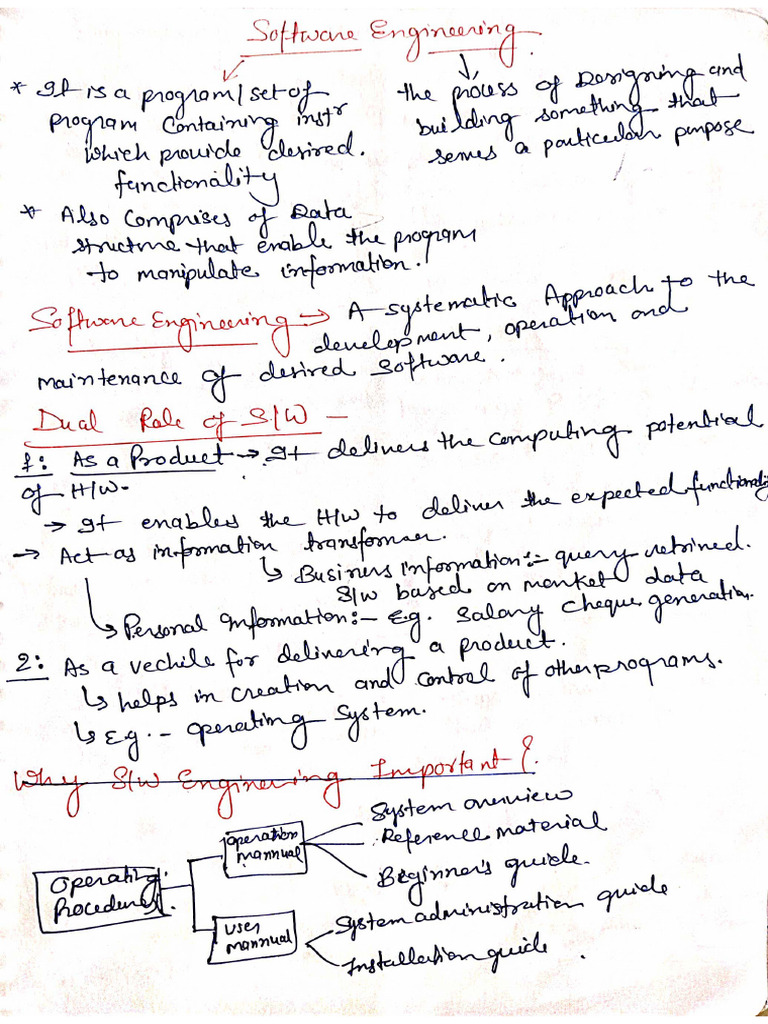 Software Engineering.
* It is a program/set of
program containing instr
which provide desired.
functionality
the process of Designing and
building something that
serves a particular purpose
* Also comprises of Data
structure that enable the program
to manipulate information.
Software Engineering → A systematic Approach to the
development, operation and
maintenance of desired software.
Dual Role of S/W –
1: As a Product → It delivers the computing potential
of H/W.
→ It enables the H/W to deliver the expected functionali
→ Act as information transformer.
↳ Business information:– query retrived.
S/w based on market data
↳ Personal Information:– E.g. Salary cheque generation.
2: As a vechile for delivering a product.
↳ helps in creation and control of other programs.
↳ E.g. – operating system.
Why S/W Engineering Important?
Operating
Procedures.
operation
mannual
System overview
Reference material
Beginner's guide.
user
mannual
System administration guide
Installation guide.